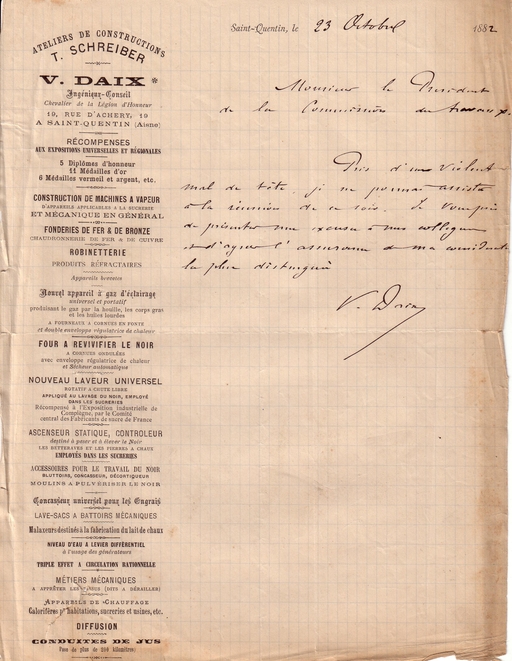 ATELIERS DE CONSTRUCTIONS
T. SCHREIBER
V. DAIX *
Ingénieur-Conseil
Chevalier de la Légion d'Honneur
19, RUE D'ACHERY, 19
A SAINT-QUENTIN (Aisne)
RÉCOMPENSES
AUX EXPOSITIONS UNIVERSELLES ET RÉGIONALES
5 Diplômes d'honneur
11 Médailles d'or
6 Médailles vermeil et argent, etc.
CONSTRUCTION DE MACHINES A VAPEUR
D'APPAREILS APPLICABLES A LA SUCRERIE
ET MÉCANIQUE EN GÉNÉRAL
FONDERIES DE FER & DE BRONZE
CHAUDRONNERIE DE FER & DE CUIVRE
ROBINETTERIE
PRODUITS RÉFRACTAIRES
Appareils brevetés
Nouvel appareil à gaz d'éclairage
universel et portatif
produisant le gaz par la houille, les corps gras
et les huiles lourdes
A FOURNEAUX A CORNUES EN FONTE
et double enveloppe régulatrice de chaleur
FOUR A REVIVIFIER LE NOIR
A CORNUES ONDULÉES
avec enveloppe régulatrice de chaleur
et Sécheur automatique
NOUVEAU LAVEUR UNIVERSEL
ROTATIF A CHUTE LIBRE
APPLIQUÉ AU LAVAGE DU NOIR, EMPLOYÉ
DANS LES SUCRERIES
Récompensé à l'Exposition industrielle de
Compiègne, par le Comité
central des Fabricants de sucre de France
ASCENSEUR STATIQUE, CONTROLEUR
destiné à peser et à élever le Noir
LES BETTERAVES ET LES PIERRES A CHAUX
EMPLOYÉS DANS LES SUCRERIES
ACCESSOIRES POUR LE TRAVAIL DU NOIR
BLUTTOIRE, CONCASSEUR, DÉCORTIQUEUR
MOULINS A PULVÉRISER LE NOIR
Concasseur universel pour les Engrais
LAVE-SACS A BATTOIRS MÉCANIQUES
Malaxeurs destinés à la fabrication du lait de chaux
NIVEAU D'EAU A LEVIER DIFFÉRENTIEL
à l'usage des générateurs
TRIPLE EFFET A CIRCULATION RATIONNELLE
MÉTIERS MÉCANIQUES
A APPRÊTER LES (DITS A DÉRAILLER)
APPAREILS DE CHAUFFAGE
Calorifères pr habitations, sucreries et usines, etc.
DIFFUSION
CONDUITES DE JUS
Pose de plus de 200 kilomètres
Saint-Quentin, le 23 Octobre 1882
Monsieur le President
de la Commission des travaux.
Pris d'un violent
mal de tête, je ne pourrai assister
à la réunion de ce soir. Je vous prie
de présenter mes excuses à mes collegues
et d'agréer l'assurance de ma considération
la plus distinguée
V. Daix